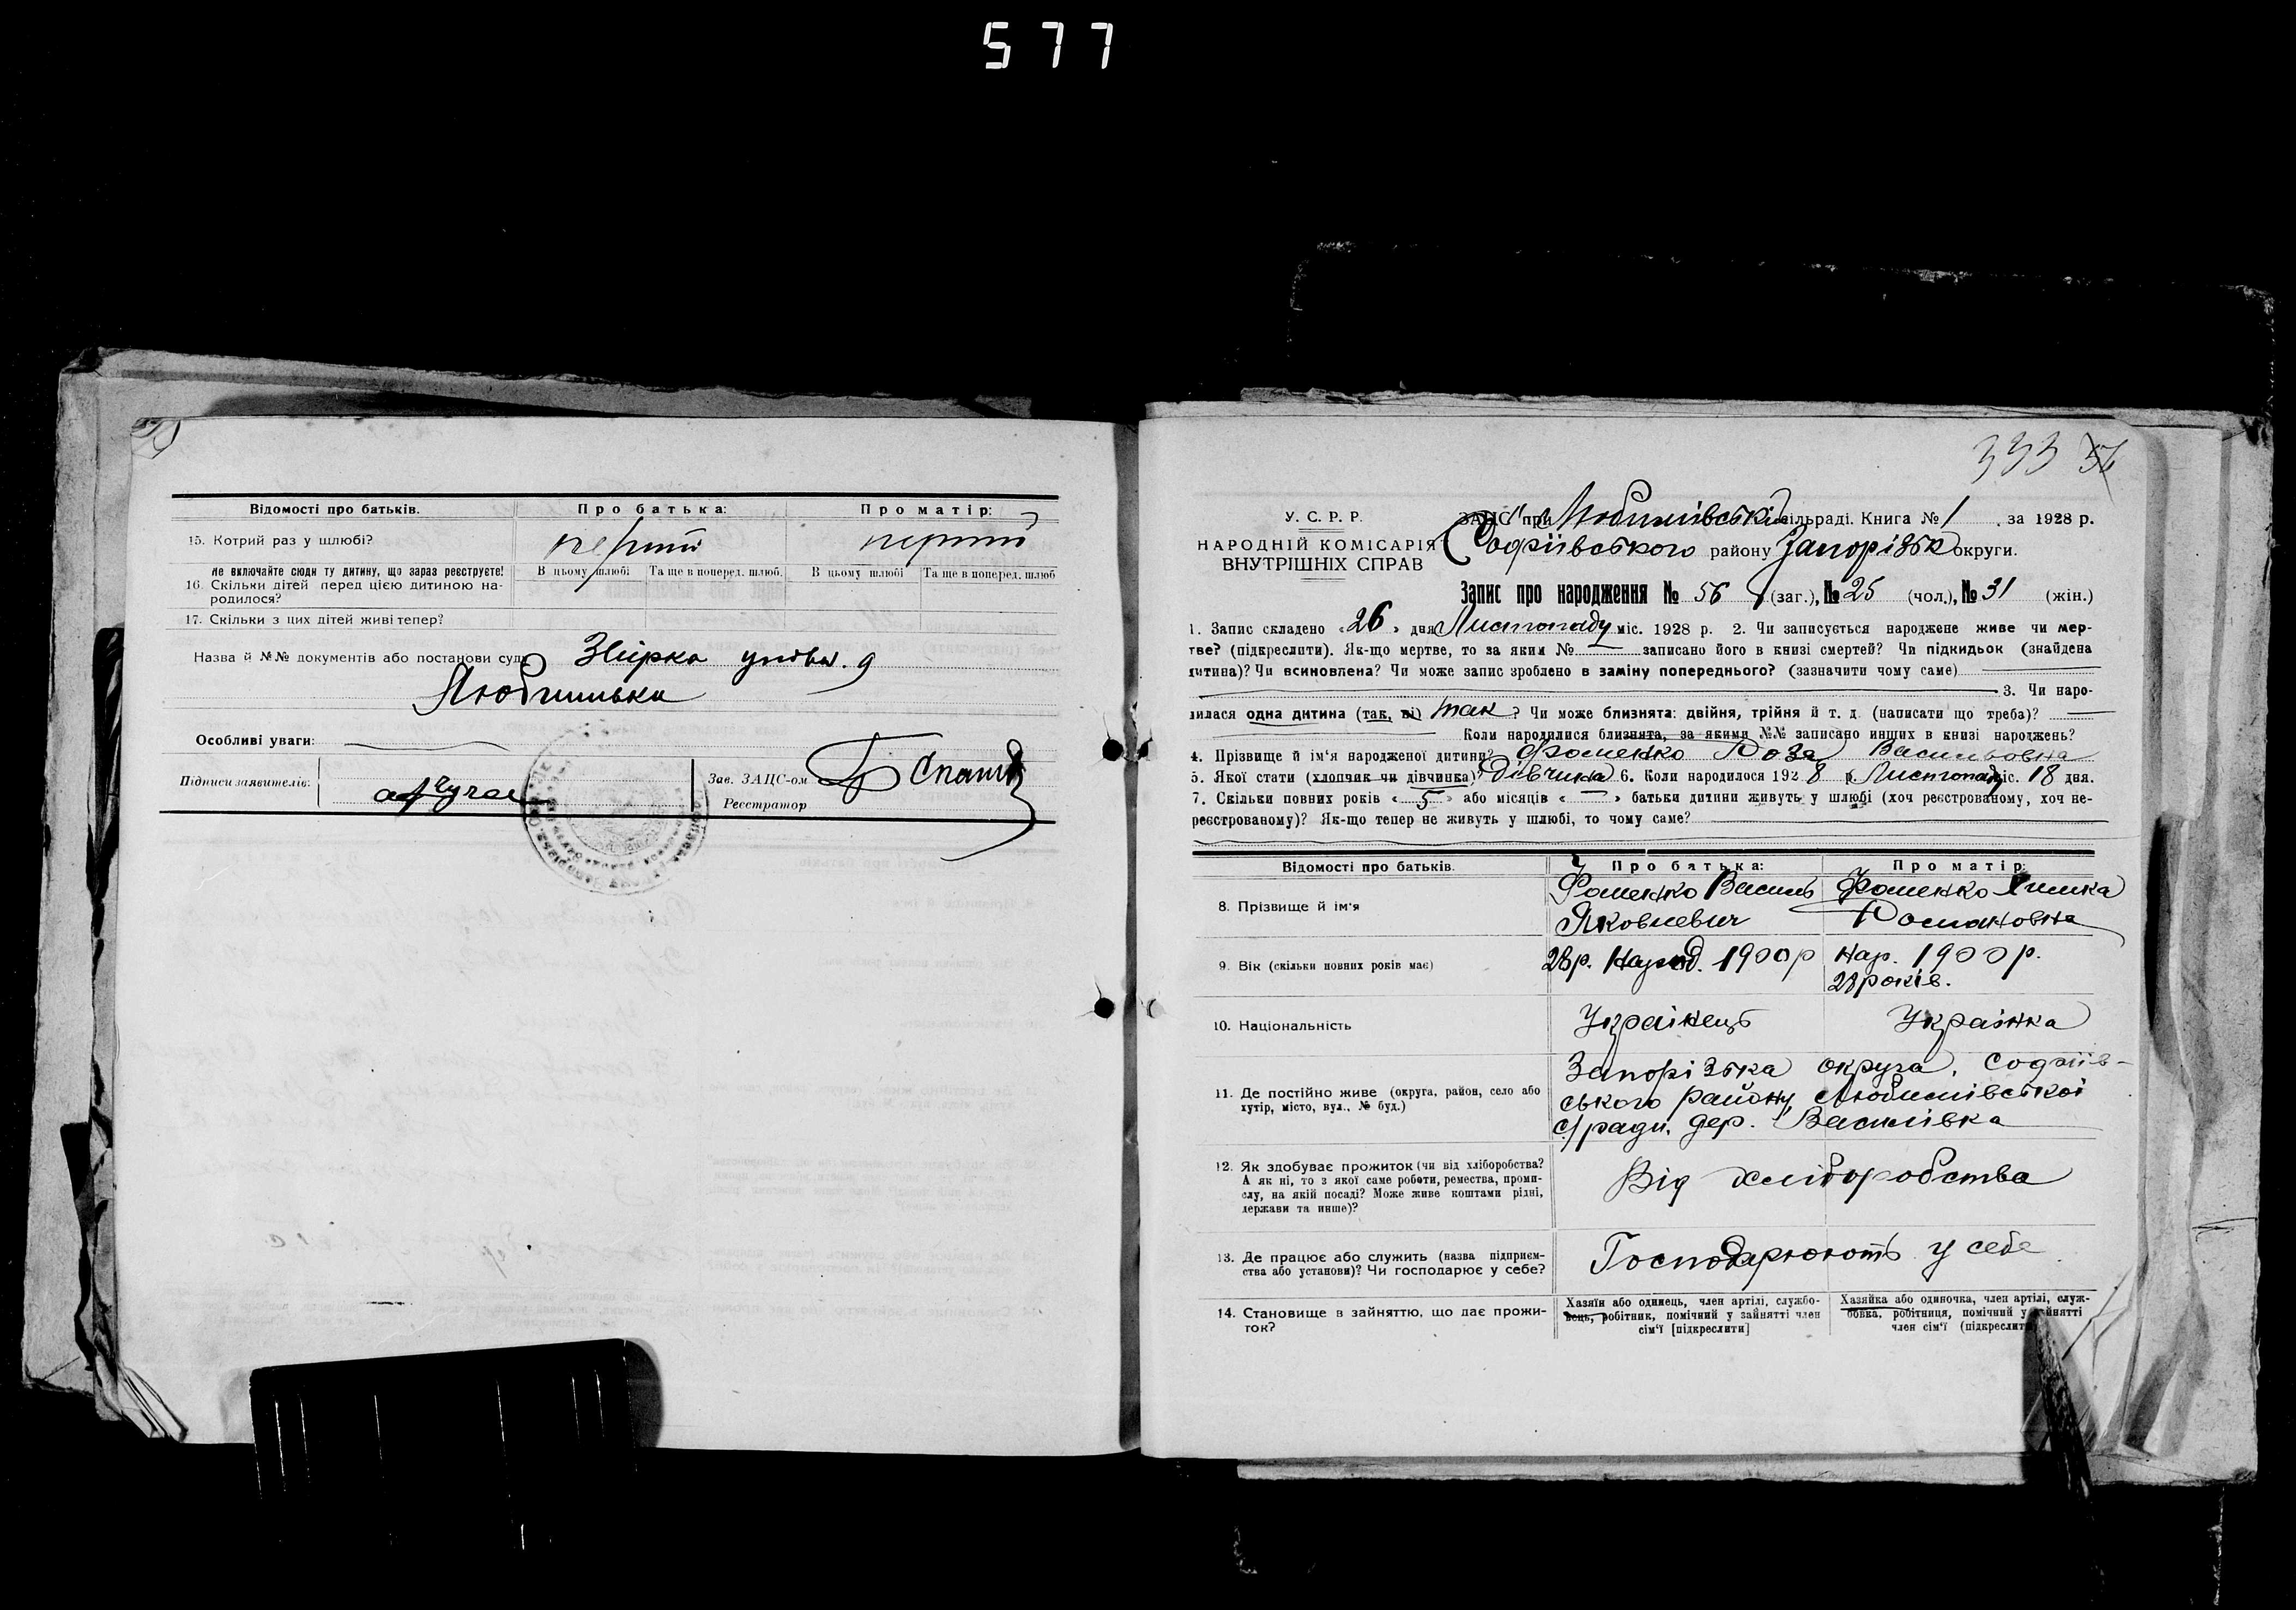 577
Відомості про батьків. Про батька: Про матір:
15. Котрий раз у шлюбі? перший перший
не включайте сюди ту дитину, що зараз реєструєте! В цьому шлюбі Та ще в поперед. шлюб. В цьому шлюбі Та ще в поперед. шлюб
16. Скільки дітей перед цією дитиною на-
родилося?
17. Скільки з цих дітей живі тепер?
Назва й №№ документів або постанови суду Звірка
Особливі уваги:
Підписи заявителів: Зав. ЗАЦС-ом
Реєстратор
393 56
У. С. Р. Р. ЗАЦС при Любимівській сільраді. Книга № 1 за 1928 р.
НАРОДНІЙ КОМІСАРІЯТ Софіївського району Запорізьк округи.
ВНУТРІШНІХ СПРАВ
Запис про народження № 56 (заг.), № 25 (чол.), № 31 (жін.)
1. Запис складено «26» дня Листопаду міс. 1928 р. 2. Чи записується народжене живе чи мер-
тве? (підкреслити). Як-що мертве, то за яким № — записано його в книзі смертей? Чи підкидьок (знайдена
дитина)? Чи всиновлена? Чи може запис зроблено в заміну попереднього? (зазначити чому саме)
3. Чи наро-
дилася одна дитина (так, ні) так? Чи може близнята: двійня, трійня й т. д. (написати що треба)? —
Коли народилися близнята, за якими №№ записано инших в книзі народжень?
4. Прізвище й ім'я народженої дитини? Фоменко Роза Васильовна
5. Якої стати (хлопчик чи дівчинка)? Дівчина 6. Коли народилося 1928 р. Листопад міс. 18 дня.
7. Скільки повних років «5» або місяців «—» батьки дитини живуть у шлюбі (хоч реєстрованому, хоч не-
реєстрованому)? Як-що тепер не живуть у шлюбі, то чому саме?
Відомості про батьків. Про батька: Про матір:
8. Прізвище й ім'я Фоменко Василь Яковлевич Фоменко Химка Романовна
9. Вік (скільки повних років має) 28 р. Народ. 1900 р Нар. 1900 р. 28 років.
10. Національність Українець Українка
11. Де постійно живе (округа, район, село або
хутір, місто, вул., № буд.)
Запорізька округа, Софіїв-
ського району, Любимівської
с/ради, дер. Василівка
12. Як здобуває прожиток (чи від хліборобства?
А як ні, то з якої саме роботи, ремества, проми-
слу, на якій посаді? Може живе коштами рідні,
держави та инше)?
Від хліборобства
13. Де працює або служить (назва підприєм-
ства або установи)? Чи господарює у себе?
Господарюють у себе
14. Становище в зайняттю, що дає прожи-
ток?
Хазяїн або одинець, член артілі, службо-
вець, робітник, помічний у зайнятті член
сім'ї [підкреслити]
Хазяйка або одиночка, член артілі, служ-
бовка, робітниця, помічний у зайнятті
член сім'ї (підкреслити